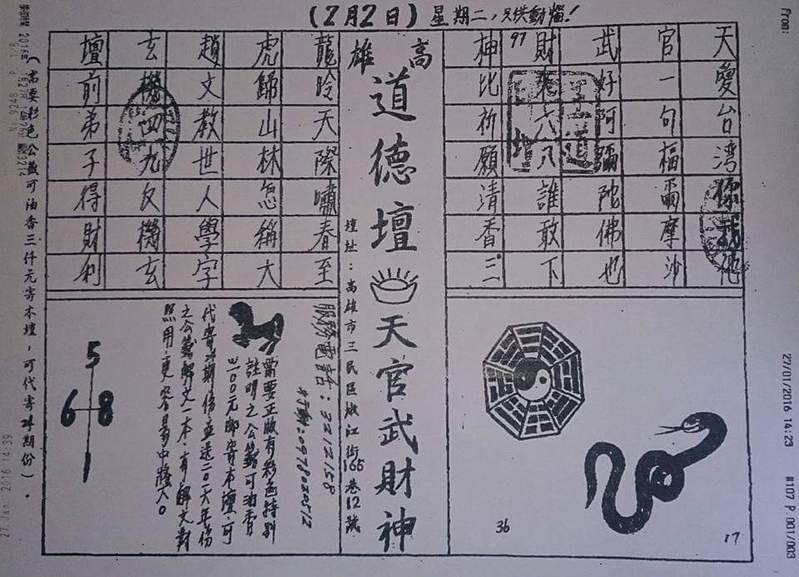 (2月2日) 星期二，只供動腦！
高雄
道德壇 天官武財神
壇址：高雄市三民區
街166巷12號
天愛台灣你我他
官一句福爾摩沙
武好阿彌陀佛也
財
六八誰敢下
神比祈願清香三
97
龍吟天際嘯春至
虎歸山林怎稱大
趙文教世人學字
玄機四九反機玄
壇前弟子得財利
36
17
服務電話：3212158
行動：0978020512
需要正版有彩色特別
註明之公籤可油香
三00元郵寄本壇，可
期份並送二0一六年份
之公籤解文一本，有解文對
照用，更容易中獎
5
6 8
1
(需要彩色公籤可油香三仟元寄本壇，可代寄
期份)．
From:
27/01/2016 14:23
#107 P.001/003
27 Jan 2016 14:39